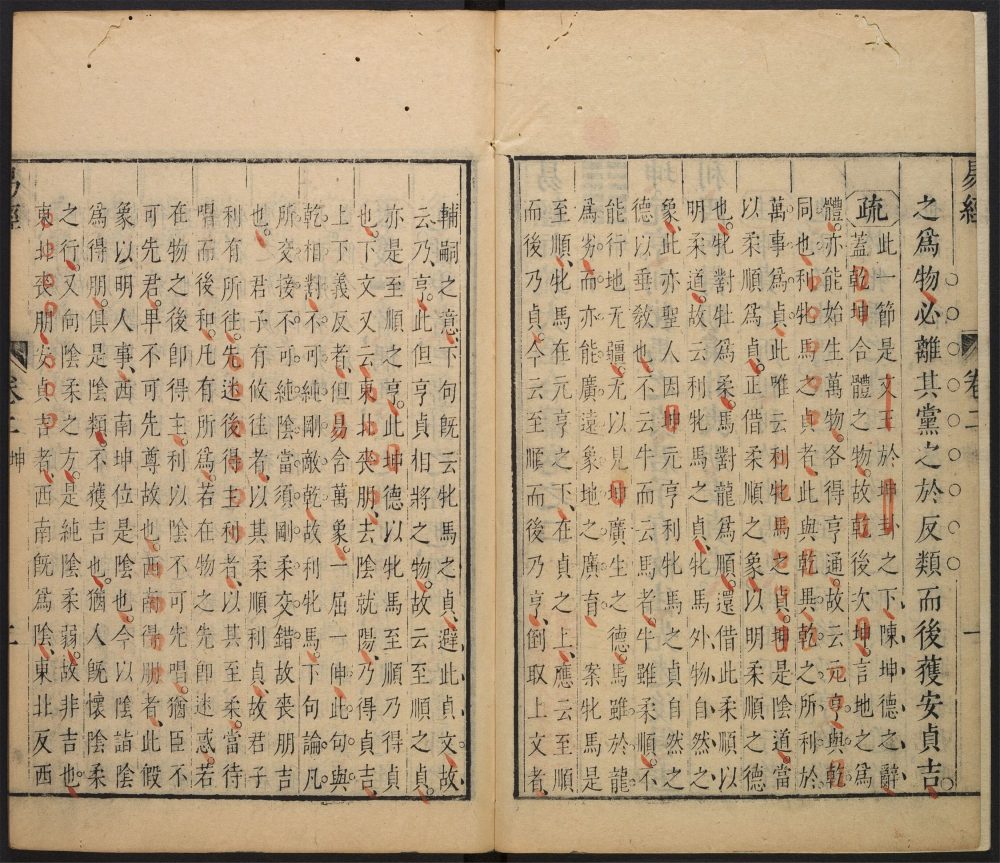 易經
卷二
一
之爲物必離其黨之於反類而後獲安貞吉
疏
此一節是文王於坤卦之下陳坤德之辭
蓋乾坤合體之物故乾後次坤言地之爲
體亦能始生萬物各得亨通故云元亨與乾
同也利牝馬之貞者此與乾異乾之所利於
萬事爲貞此唯云利牝馬之貞坤是陰道當
以柔順爲貞正借柔順之象以明柔順之德
也牝對牡爲柔馬對龍爲順還借此柔順以
明柔道故云利牝馬之貞牝馬外物自然之
象此亦聖人因坤元亨利牝馬之貞自然之
德以垂敎也不云牛而云馬者牛雖柔順不
能行地无疆无以見坤廣生之德馬雖於龍
爲劣而亦能廣遠象地之廣育案牝馬是
至順牝馬在元亨之下在貞之上應云至順
而後乃貞今云至順而後乃亨倒取上文者
輔嗣之意下句旣云牝馬之貞避此貞文故
云乃亨此但亨貞相將之物故云至順之貞
亦是至順之亨此坤德以牝馬至順乃得貞
也下文又云東北喪朋去陰就陽乃得貞吉
上下義反者但易含萬象一屈一伸此句與
乾相對不可純剛敵乾故利牝馬下句論凡
所交接不可純陰當須剛柔交錯故喪朋吉
也君子有攸往者以其柔順利貞故君子
利有所往先迷後得主利者以其至柔當待
唱而後和凡有所爲若在物之先卽迷惑若
在物之後卽得主利以陰不可先唱猶臣不
可先君卑不可先尊故也西南得朋者此假
象以明人事西南坤位是陰也今以陰詣陰
爲得朋俱是陰類不獲吉也猶人旣懷陰柔
之行又向陰柔之方是純陰柔弱故非吉也
東北喪朋安貞吉者西南旣爲陰東北反西
易經
卷二
坤
二